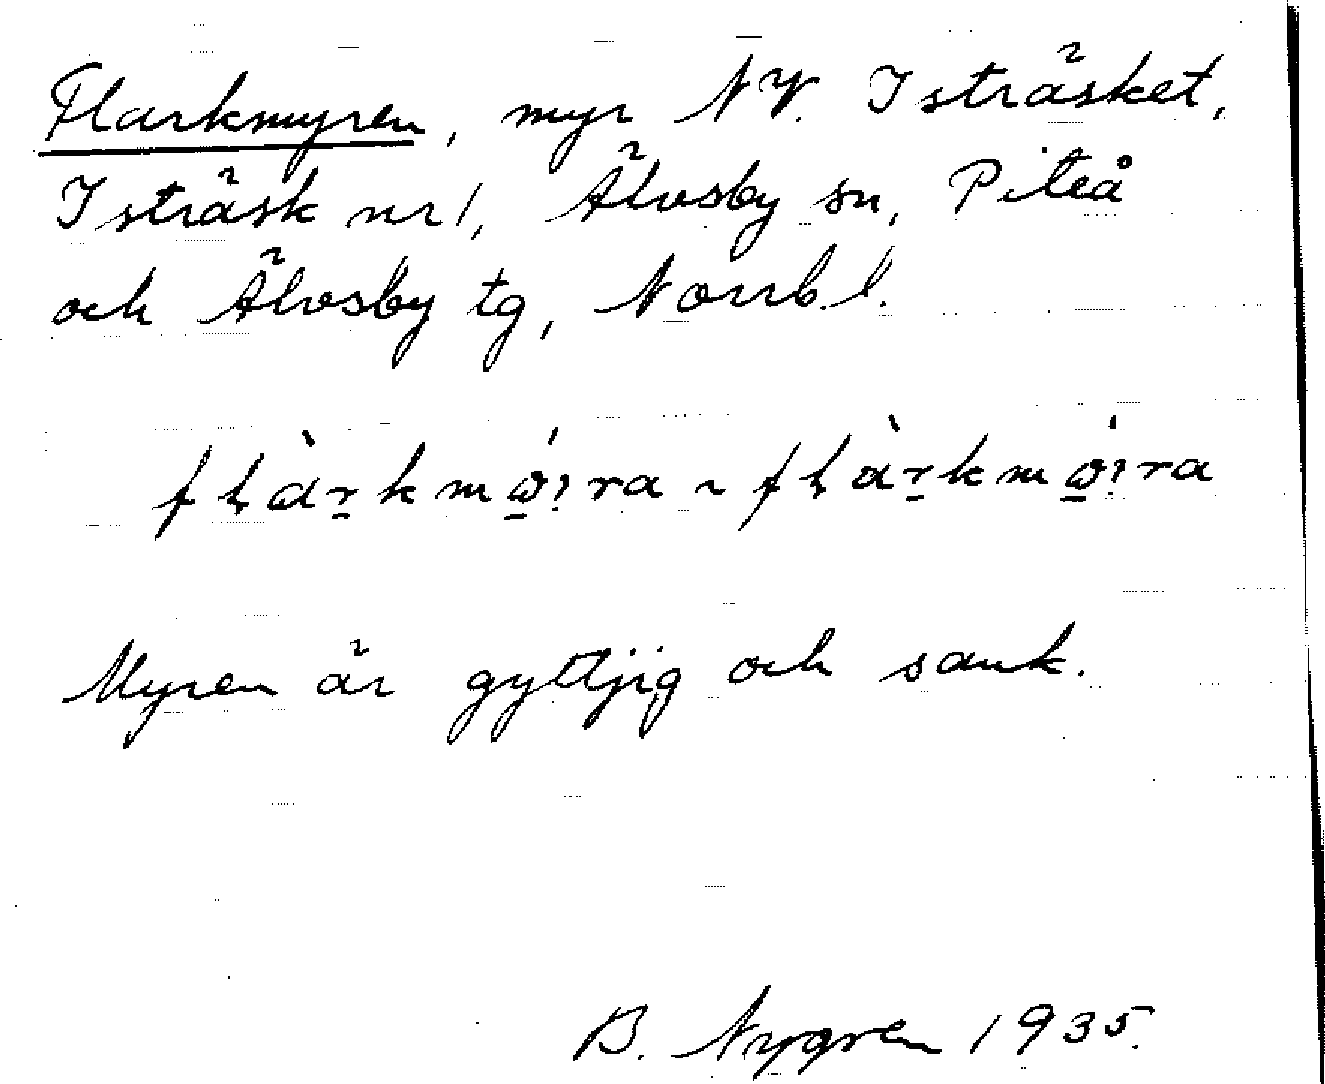 Flarkmyren, myr NV. Isträsket,
Isträsk nr 1, Älvsby sn, Piteå
och Älvsby tg, Norrb. l.
Myren är gyttjig och sank.
B. Nygren 1935.